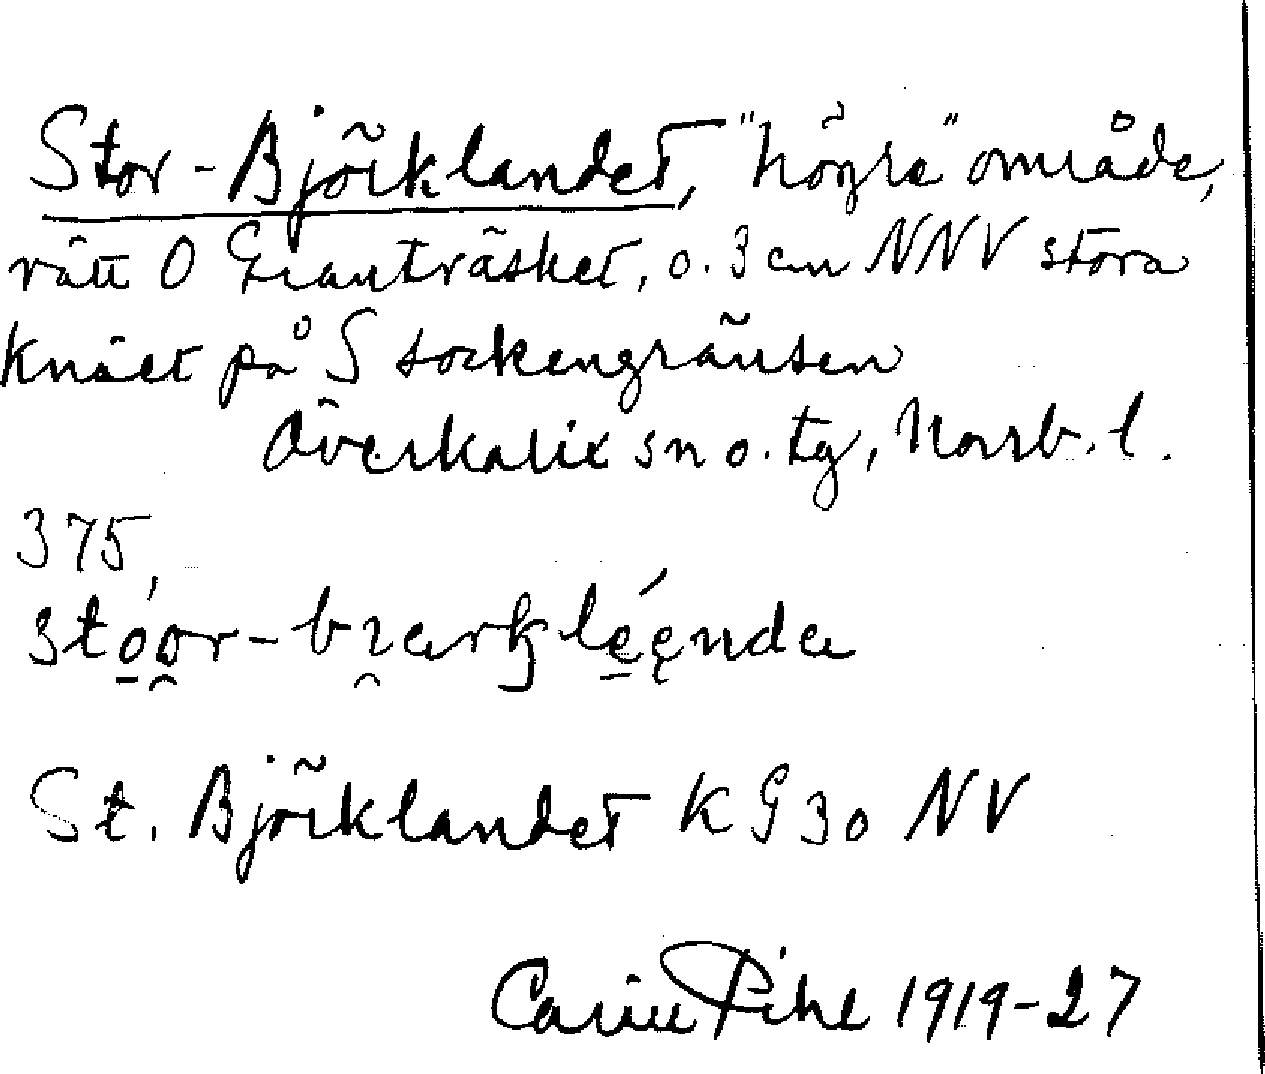 Stor-Björklandet, "högre" område,
rätt O Granträsket, o. 3 cm NNV stora
knäet på S sockengränsen
Överkalix sn o. tg, Norrb. l.
375,
St. Björklandet K G 30 NV
Carin Pihl 1919-27